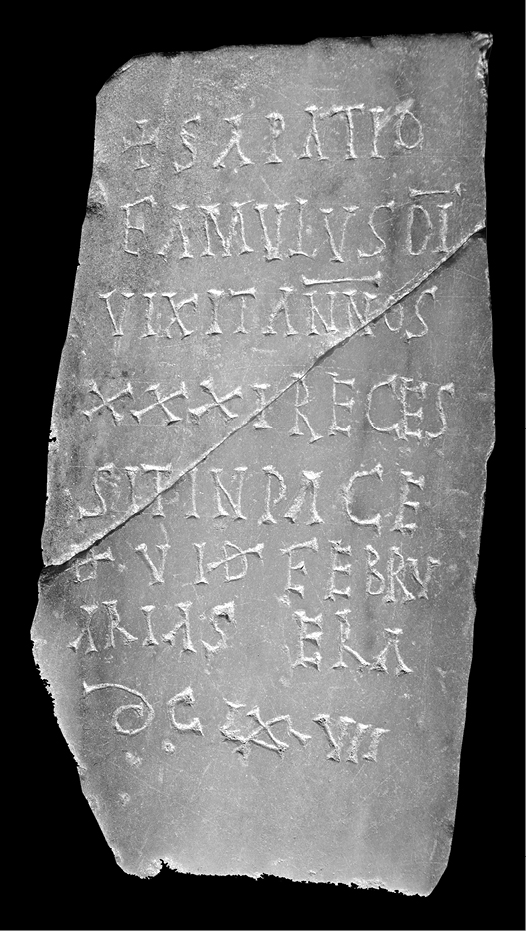 + SAPATIO
FAMULUS DI
VIXIT ANNOS
XXXI RECES
SIT IN PACE
D VI ID FEBRV
ARIAS ERA
DC VII